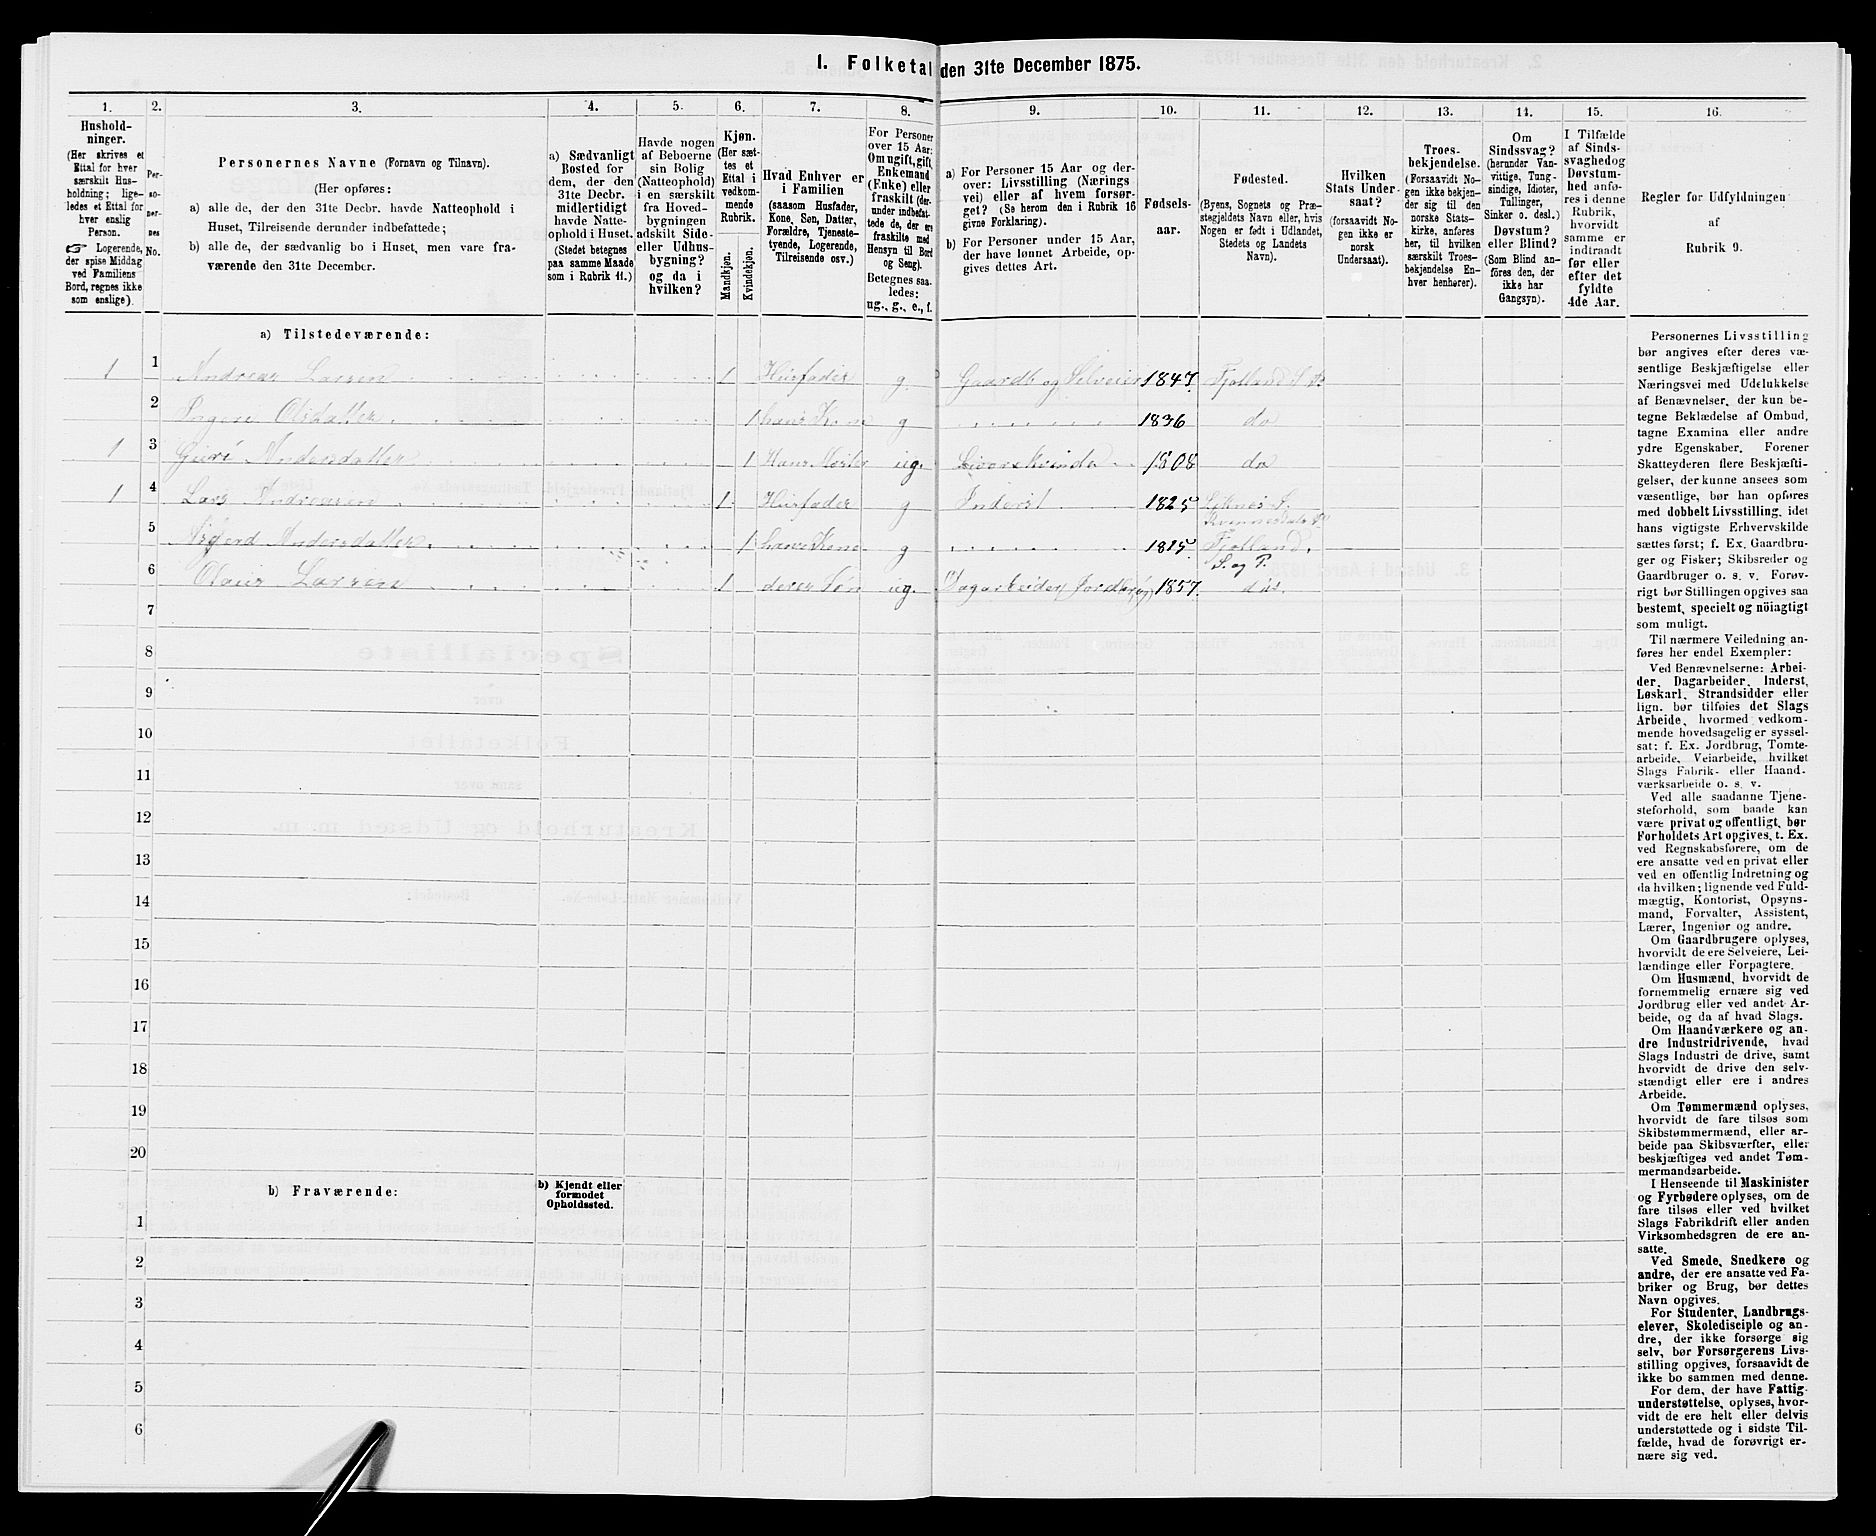 1. Folketal den 31te December 1875.
1. 2. 3. 4. 5. 6. 7. 8. 9. 10. 11. 12. 13. 14. 15. 16.
Hushold-
ninger.
(Her skrives et
Ettal for hver
særskilt Hus-
holdning; lige-
ledes et Ettal for
hver enslig
Person.
☞ Logerende,
der spise Middag
ved Familiens
Bord, regnes ikke
som enslige).
Per-
so-
ner-
nes
No.
Personernes Navne (Fornavn og Tilnavn).
(Her opføres:
a) alle de, der den 31te Decbr. havde Natteophold i
Huset, Tilreisende derunder indbefattede;
b) alle de, der sædvanlig bo i Huset, men vare fra-
værende den 31te December.
a) Sædvanligt
Bosted for
dem, der den
31te Decbr.
midlertidigt
havde Natte-
ophold i Huset.
(Stedet betegnes
paa samme Maade
som i Rubrik 11.)
Havde nogen
af Beboerne
sin Bolig
(Natteophold)
i en særskilt
fra Hoved-
bygningen
adskilt Side-
eller Udhus-
bygning?
og da i
hvilken?
Kjøn.
(Her sæt-
tes et
Ettal i
vedkom-
mende
Rubrik.
Mandkjøn.
Kvindekjøn.
Hvad Enhver er
i Familien
(saasom Husfader,
Kone, Søn, Datter,
Forældre, Tjeneste-
tyende, Logerende,
Tilreisende osv.)
For Personer
over 15 Aar:
Om ugift, gift,
Enkemand
(Enke) eller
fraskilt (der-
under indbefat-
tede de, der ere
fraskilte med
Hensyn til Bord
og Seng).
Betegnes saa-
ledes:
ug., g., e., f.
a) For Personer 15 Aar og der-
over: Livsstilling (Nærings
vei) eller af hvem forsør-
get? (Se herom den i Rubrik 16
givne Forklaring).
b) For Personer under 15 Aar,
der have lønnet Arbeide, op-
gives dettes Art.
Fødsels-
aar.
Fødested.
(Byens, Sognets og Præ-
stegjeldets Navn eller, hvis
Nogen er født i Udlandet,
Stedets og Landets
Navn).
Hvilken
Stats Under-
saat?
(forsaavidt No-
gen ikke er
norsk
Undersaat).
Troes-
bekjendelse.
(Forsaavidt No-
gen ikke bekjen-
der sig til den
norske Stats-
kirke, anføres
her, til hvilken
særskilt Troes-
bekjendelse En-
hver henhører).
Om
Sindssvag?
(herunder Van-
vittige, Tung-
sindige, Idioter,
Tullinger,
Sinker o. desl.)
Døvstum?
eller Blind?
(Som Blind an-
føres den, der
ikke har
Gangsyn).
I Tilfælde
af Sinds-
svaghed og
Døvstum-
hed anfø-
res i denne
Rubrik,
hvorvidt
samme er
indtraadt
før eller
efter det
fyldte
4de Aar.
Regler for Udfyldningen
af
Rubrik 9.
a) Tilstedeværende:
1 1 Andreas Larsen 1 Husfader g Gaardb og Selveier 1847 Fjotland S P
2 Olsdatter 1 hans Kone g 1836 do
1 3 Guri Andersdatter 1 Hans Moster ug. 1808 do
1 4 Lars Andreasen 1 Husfader g Inderst 1825 S.
5 Andersdatter 1 hans Kone g 1815 Fjotland
S. og P.
6 Olaus Larsen 1 deres Søn ug. Dagarbeider 1857
7
8
9
10
11
12
13
14
15
16
17
18
19
20
b) Fraværende:
b) Kjendt eller
formodet
Opholdssted.
1
2
3
4
5
6
Personernes Livsstilling
bør angives efter deres væ-
sentlige Beskjæftigelse eller
Næringsvei med Udelukkelse
af Benævnelser, der kun be-
tegne Beklædelse af Ombud,
tagne Examina eller andre
ydre Egenskaber. Forener
Skatteyderen flere Beskjæfti-
gelser, der kunne ansees som
væsentlige, bør han opføres
med dobbelt Livsstilling, idet
hans vigtigste Erhvervskilde
sættes først; f. Ex. Gaardbru-
ger og Fisker; Skibsreder og
Gaardbruger o. s. v. Forøv-
rigt bør Stillingen opgives saa
bestemt, specielt og nöiagtigt
som muligt.
Til nærmere Veiledning an-
føres her endel Exempler:
Ved Benævnelserne: Arbei-
der, Dagarbeider, Inderst,
Løskarl, Strandsidder eller
lign. bør tilføies det Slags
Arbeide, hvormed vedkom-
mende hovedsagelig er syssel-
sat: f. Ex. Jordbrug, Tomte-
arbeide, Veiarbeide, hvilket
Slags Fabrik- eller Haand-
værksarbeide o. s. v.
Ved alle saadanne Tjene-
steforhold, som baade kan
være privat og offentligt, bør
Forholdets Art opgives, t. Ex.
ved Regnskabsførere, om de
ere ansatte ved en privat eller
ved en offentlig Indretning og
da hvilken; lignende ved Fuld-
mægtig, Kontorist, Opsyns-
mand, Forvalter, Assistent,
Lærer, Ingeniør og andre.
Om Gaardbrugere oplyses,
hvorvidt de ere Selveiere, Lei-
lændinge eller Forpagtere.
Om Husmænd, hvorvidt de
fornemmelig ernære sig ved
Jordbrug eller ved andet Ar-
beide, og da af hvad Slags.
Om Haandværkere og an-
dre Industridrivende, hvad
Slags Industri de drive, samt
hvorvidt de drive den selv-
stændigt eller ere i andres
Arbeide.
Om Tømmermænd oplyses,
hvorvidt de fare tilsøs som
Skibstømmermænd, eller ar-
beide paa Skibsværfter, eller
beskjæftiges ved andet Tøm-
mermandsarbeide.
I Henseende til Maskinister
og Fyrbødere oplyses, om de
fare tilsøs eller ved hvilket
Slags Fabrikdrift eller anden
Virksomhedsgren de ere an-
satte.
Ved Smede, Snedkere og
andre, der ere ansatte ved Fa-
briker og Brug, bør dettes
Navn opgives.
For Studenter, Landbrugs-
elever, Skoledisciple og an-
dre, der ikke forsørge sig
selv, bør Forsørgerens Livs-
stilling opgives, forsaavidt de
ikke bo sammen med denne.
For dem, der have Fattig-
understøttelse, oplyses, hvor-
vidt de ere helt eller delvis
understøttede og i sidste Til-
fælde, hvad de forøvrigt er-
nære sig ved.